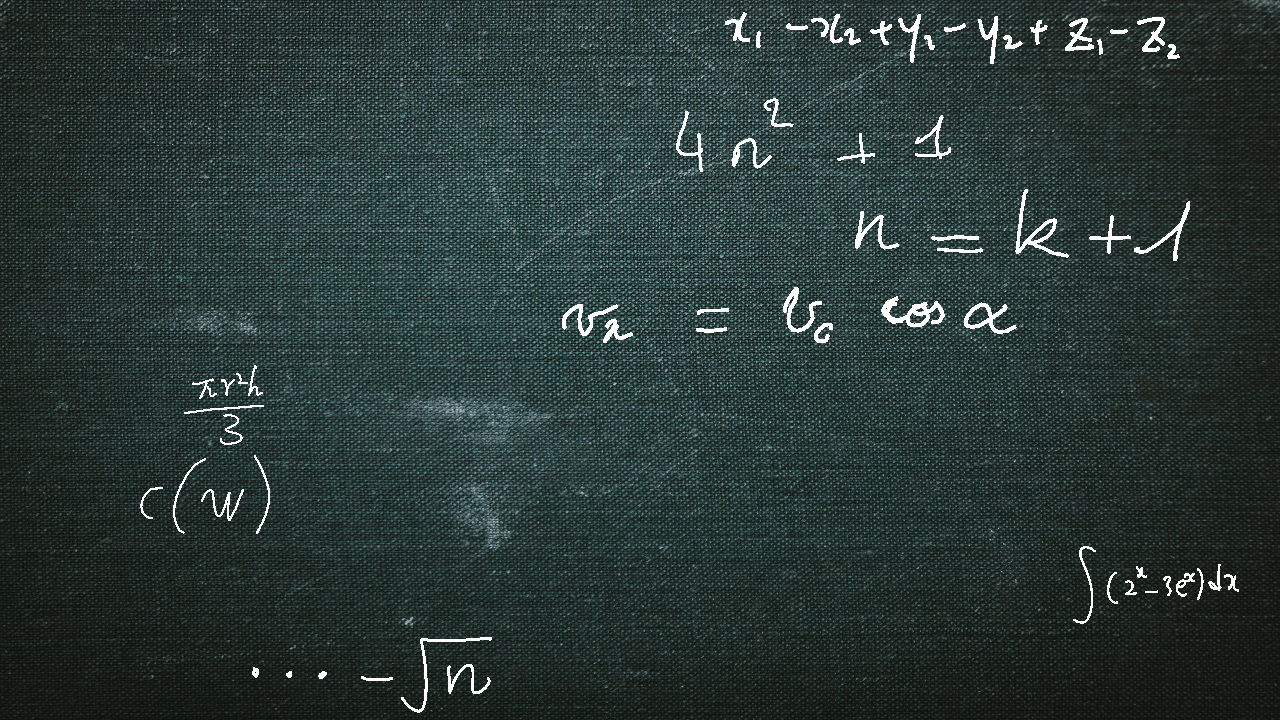 x₁ - x₂ + y₁ - y₂ + z₁ - z₂
4n² + 1
n = k + 1
vₓ = v₀ cos α
πr²h / 3
c(w)
∫(2ˣ - 3eˣ)dx
... - √n